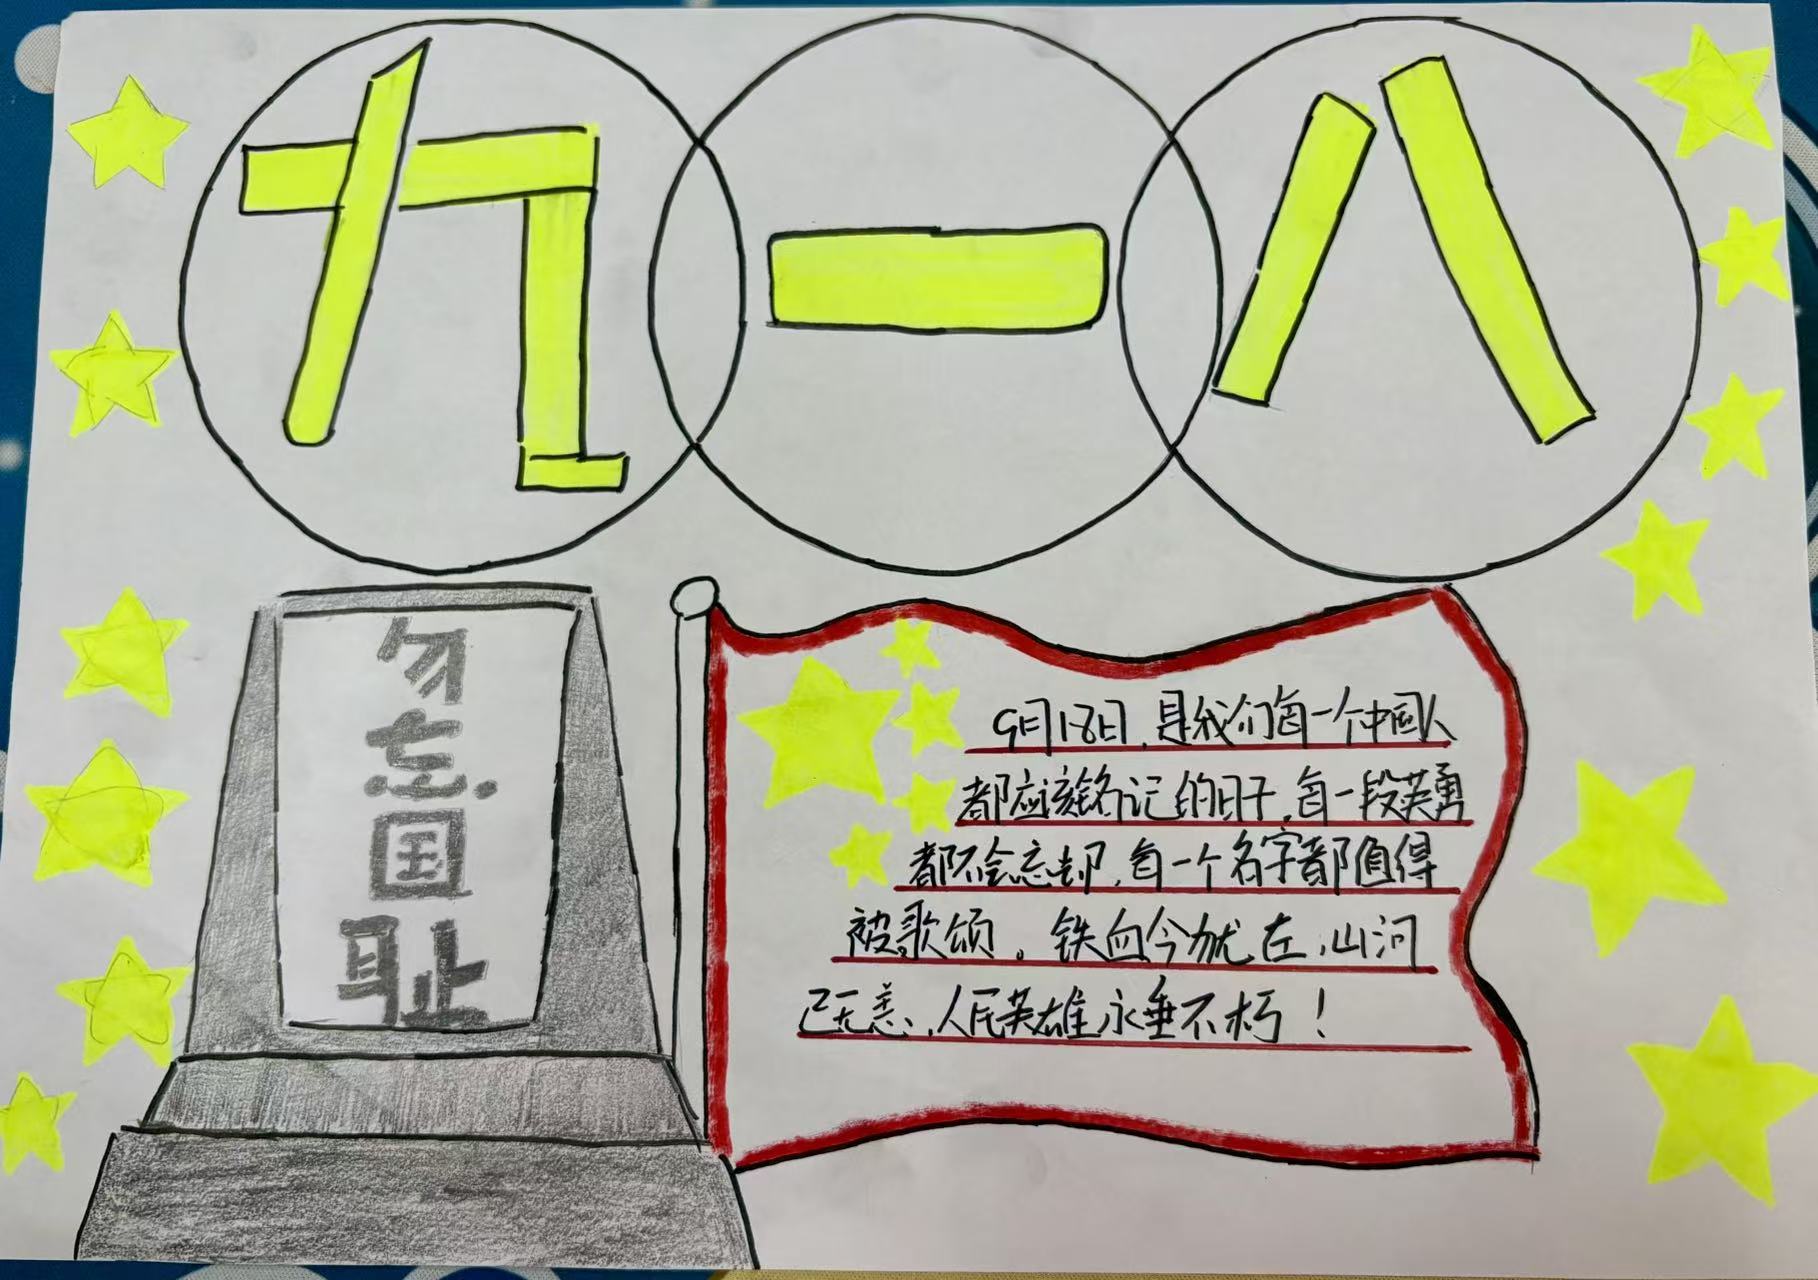 九一八
勿忘国耻
9月18日,是我们每一个中国人
都应该铭记的日子,每一段英勇
都不会忘却,每一个名字都值得
被歌颂。铁血今犹在,山河
已无恙,人民英雄永垂不朽!